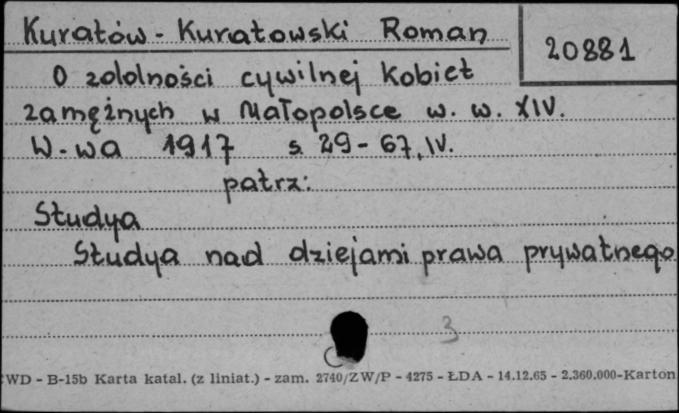 Kuratów - Kuratowski Roman
20881
O zdolności cywilnej kobiet
zamężnych w Małopolsce w. w. XIV.
W-wa 1917 s. 29-67, IV.
patrz:
Studya
Studya nad dziejami prawa prywatnego
3
WD - B-15b Karta katal. (z liniat.) - zam. 2740/ZW/P - 4275 - ŁDA - 14.12.65 - 2.360.000-Karton